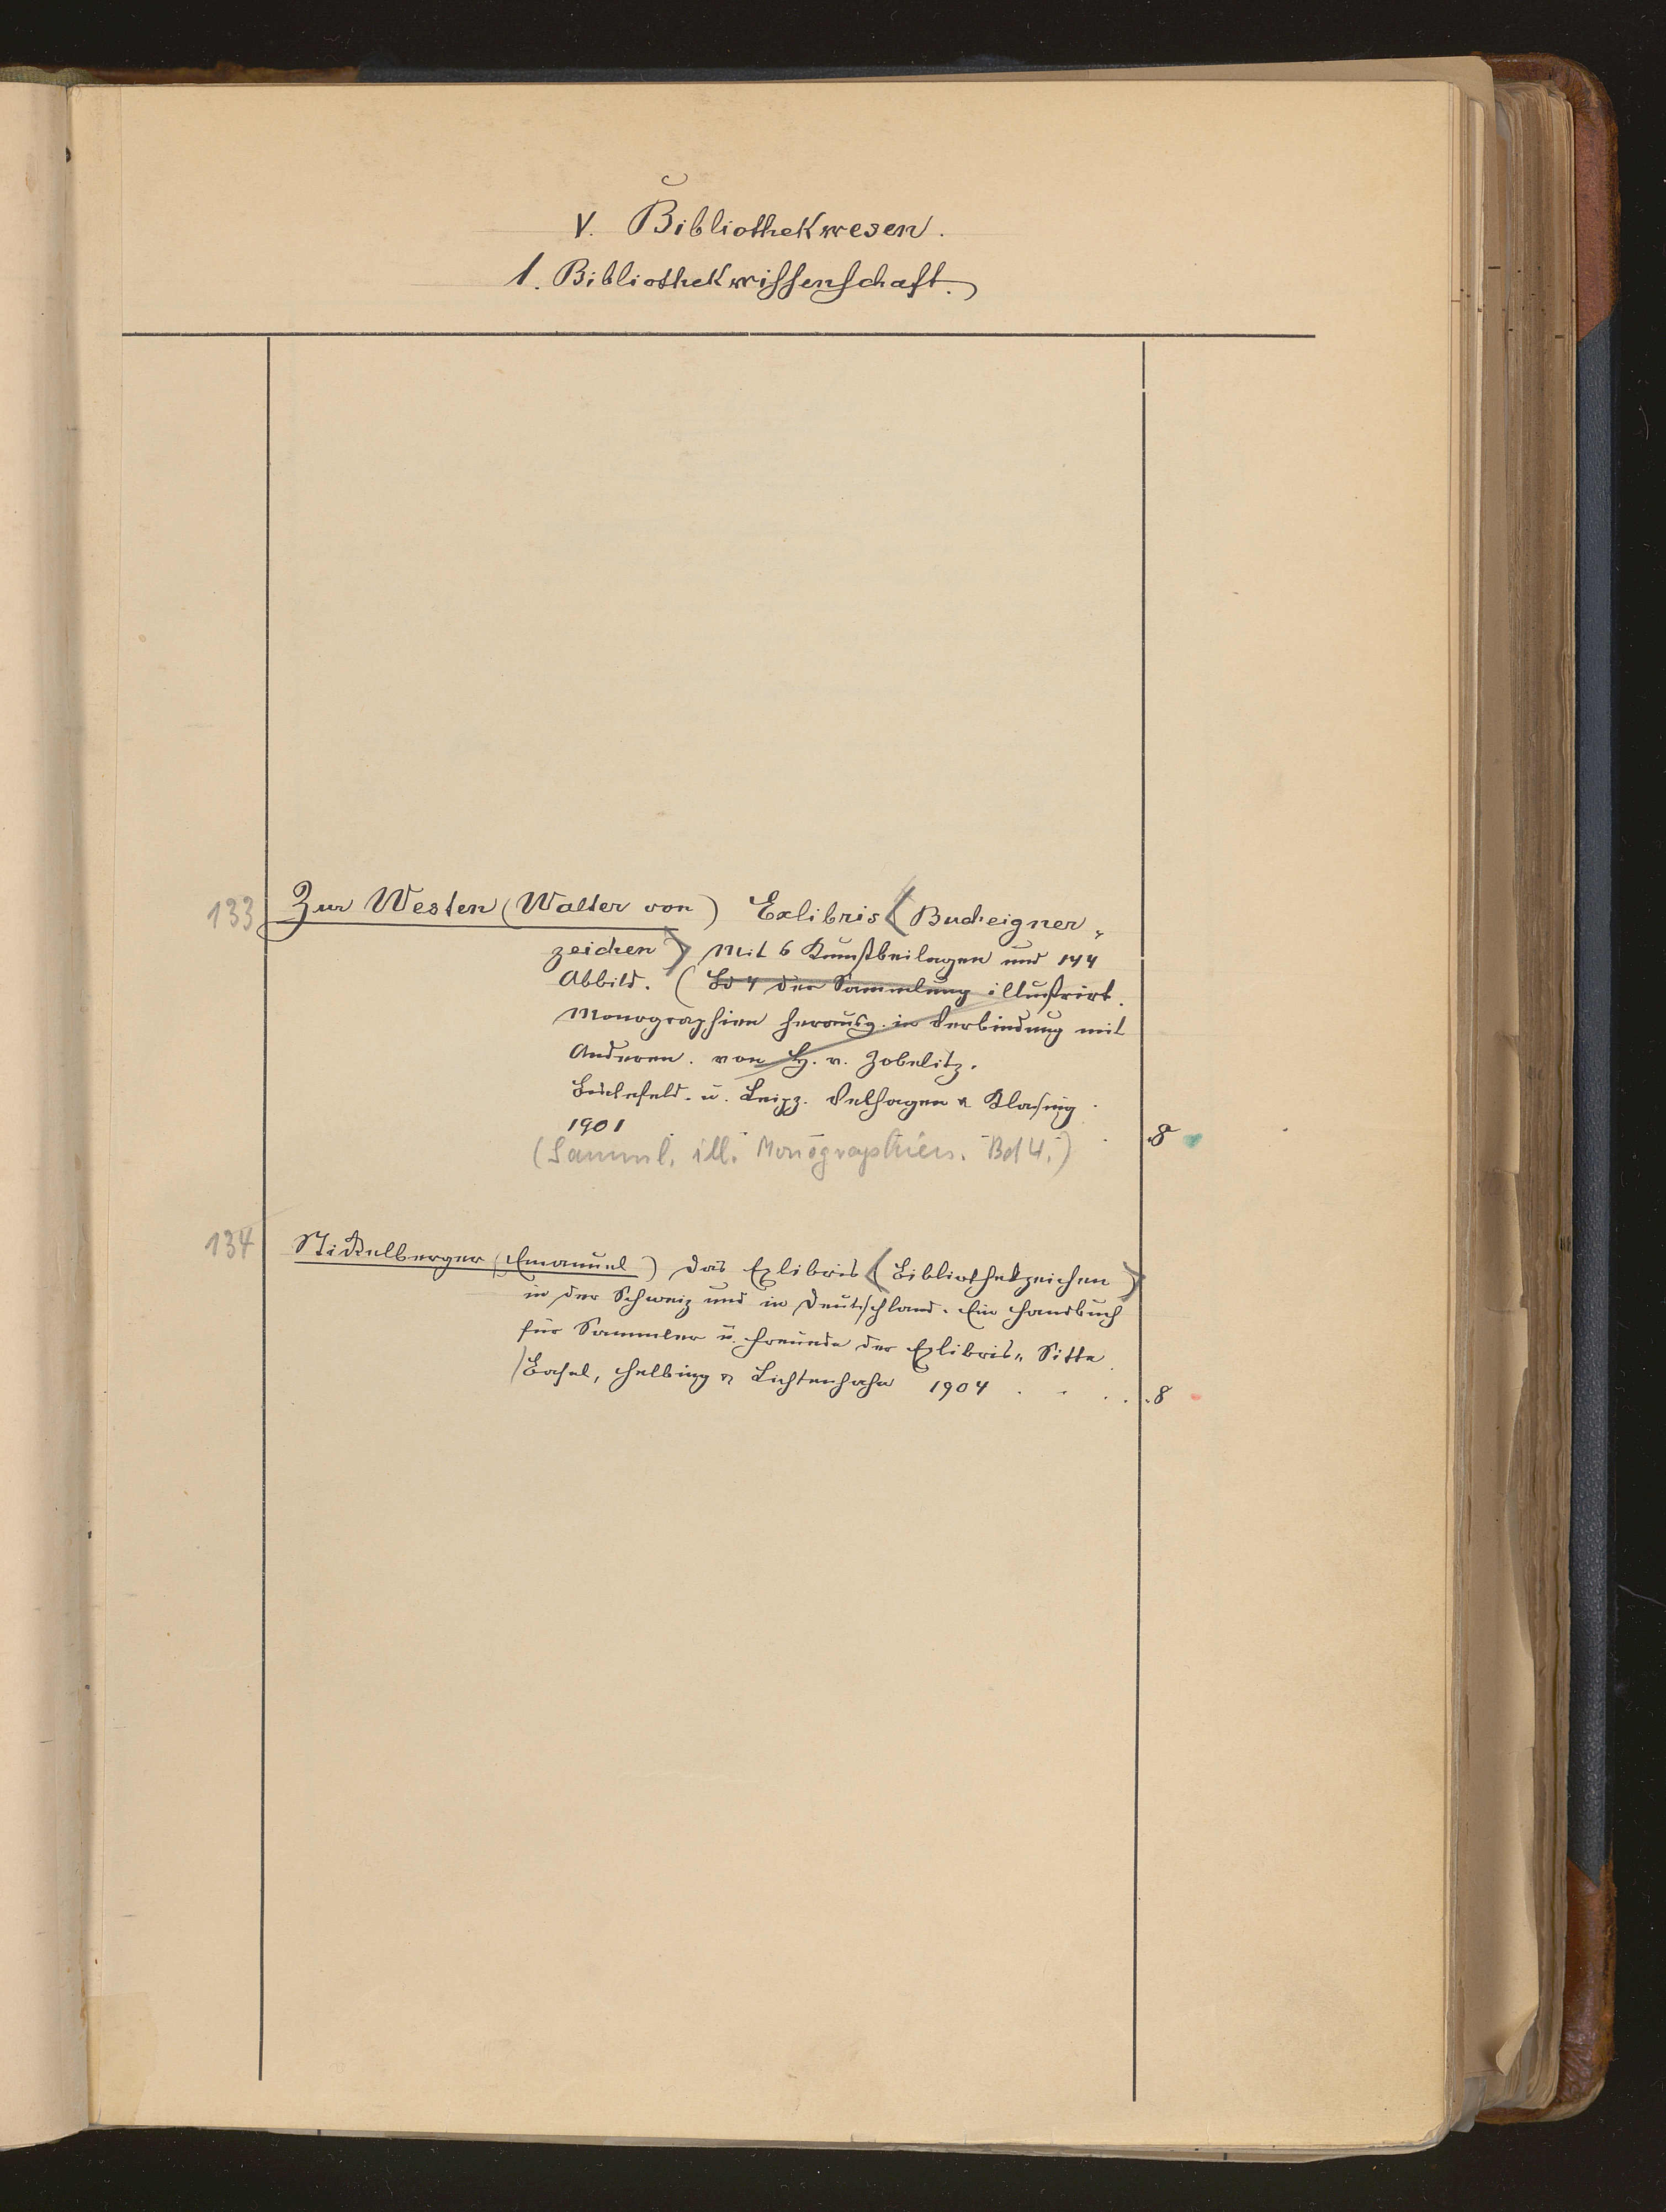 V. Bibliothekwesen.
1. Bibliothekwissenschaft.
133 Zur Westen (Walter von) Exlibris (Bucheigner-
zeichen) Mit 6 Kunstbeilagen und 144
Abbild. (Bd 4 der Sammlung illustrirt.
Monographien herausg. in Verbindung mit
Anderen. von H. v. Zobelitz.
Bielefeld. u. Leipz. Velhagen & Klasing.
1901 . . . 8°
(Samml. ill. Monographien. Bd 4.)
134 Stickelberger (Emanuel) Das Exlibris (Bibliothekzeichen)
in der Schweiz und in Deutschland. Ein Handbuch
für Sammler u. Freunde der Exlibris-Sitte.
Basel, Helbing & Lichtenhahn 1904 . . . . 8